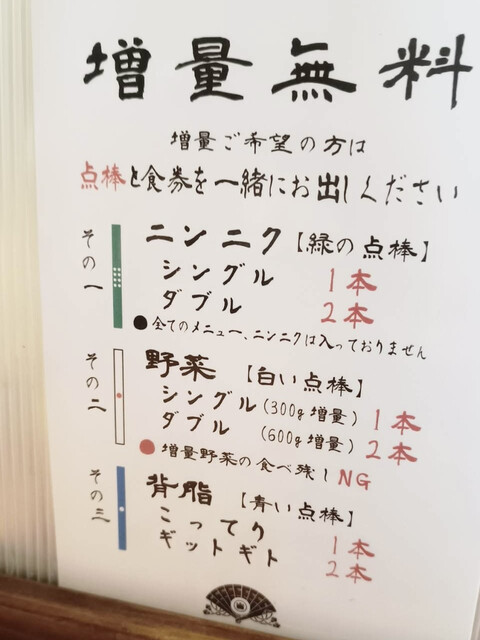 増量無料
増量ご希望の方は
点棒と食券を一緒にお出しください
その一
ニンニク【緑の点棒】
シングル 1本
ダブル 2本
●全てのメニュー、ニンニクは入っておりません
その二
野菜【白い点棒】
シングル(300g増量) 1本
ダブル(600g増量) 2本
●増量野菜の食べ残しNG
その三
背脂【青い点棒】
こってり 1本
ギットギト 2本